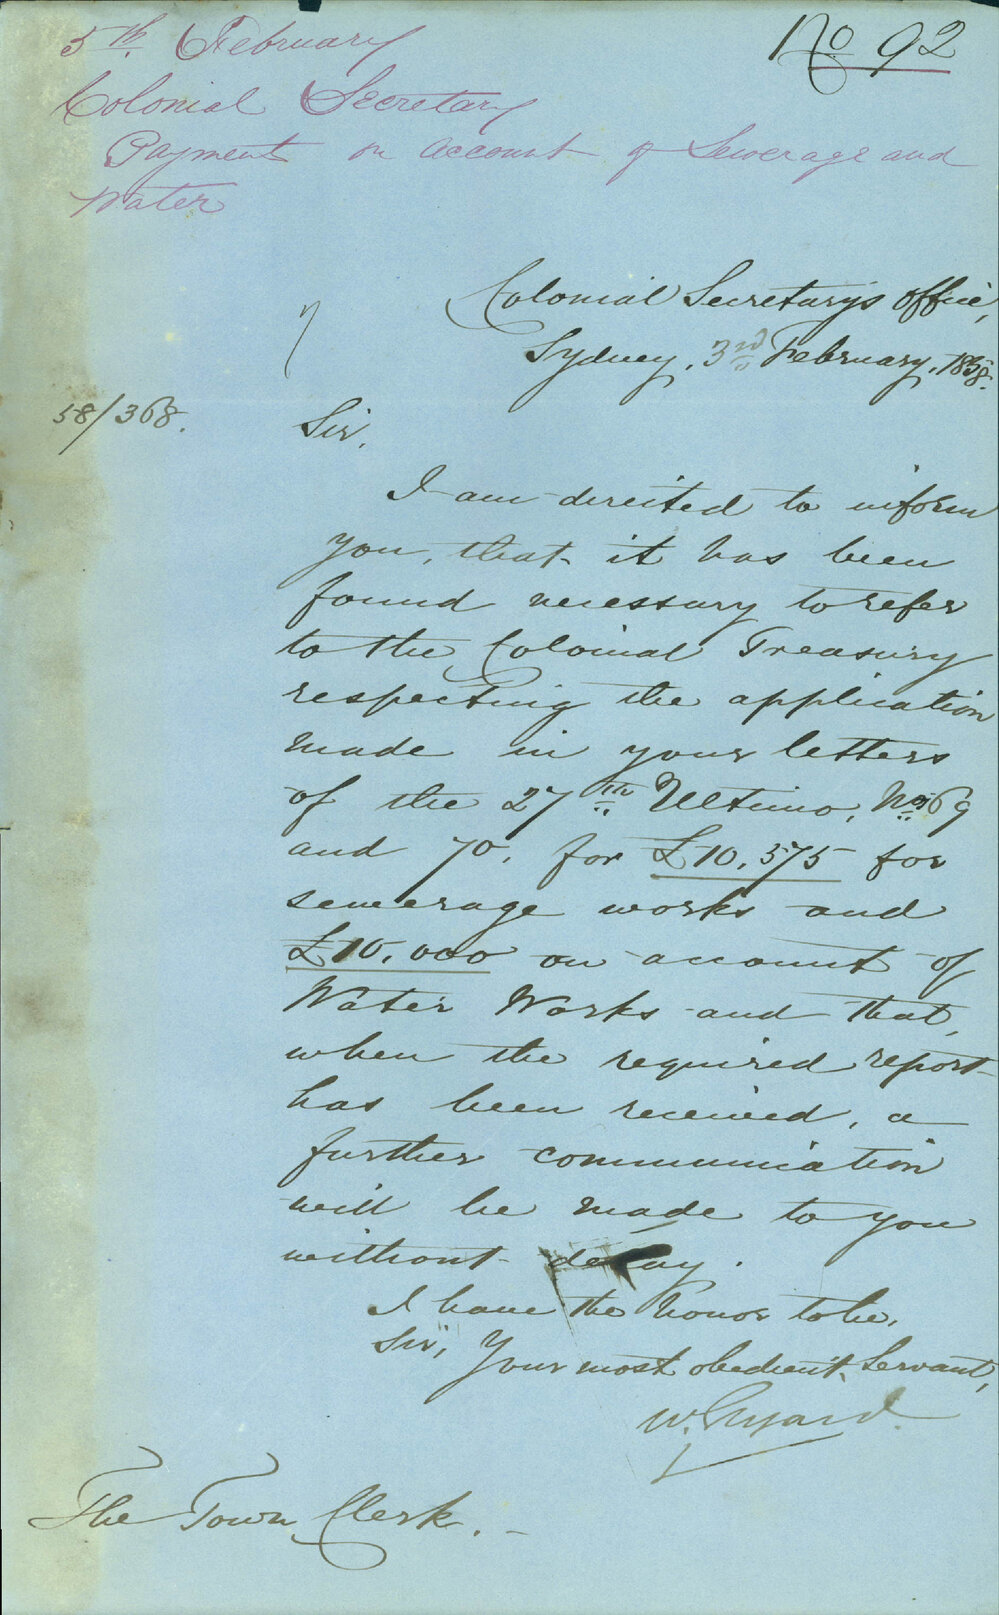 No 92
5th. February
Colonial Secretary
Payment on account of Sewerage and
Water
Colonial Secretary's Office,
Sydney, 3rd February, 1858.
58/368.
Sir,
I am directed to inform
you, that it has been
found necessary to refer
to the Colonial Treasury
respecting the application
made in your letters
of the 27th Ultimo, Nos 69
and 70, for £10,575 for
sewerage works and
£10,000 on account of
Water Works and that,
when the required report
has been received, a
further communication
will be made to you
without delay.
I have the honor to be,
Sir,
Your most obedient Servant,
W. Elyard
The Town Clerk.